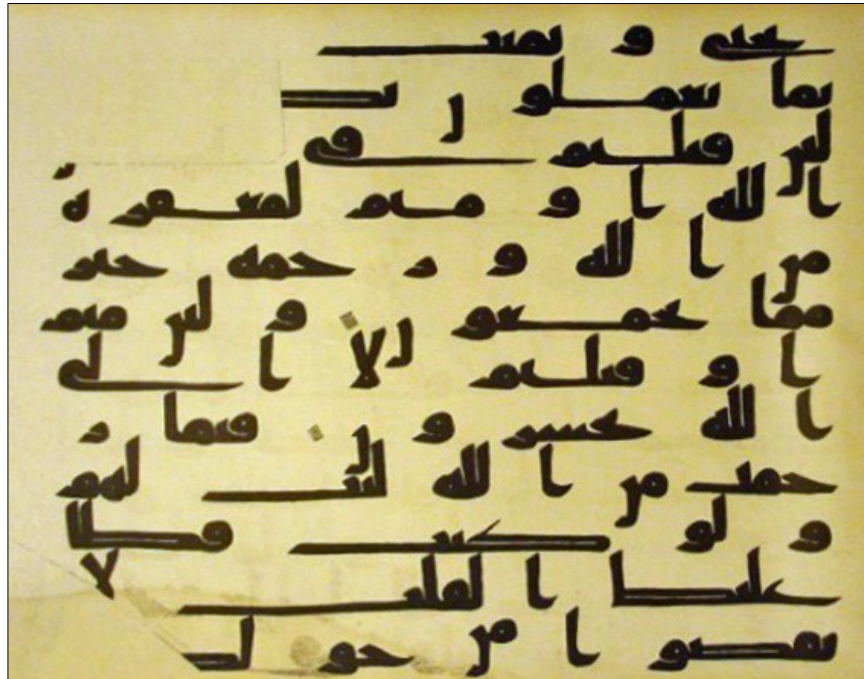 يحيى و يميت
بما تعملو ن بصـ
لئن قتلتم فى
ا لله ا و متم لمغفرة
من ا لله و ر حمة خير
مما يجمعو ن و لئن متم
ا و قتلتم لا ا لى
ا لله تحشر و ن فبما ر
حمت من ا لله لنت لهم
و لو كنت فظا
غليظ ا لقلب لا
نفضو ا من حو لك